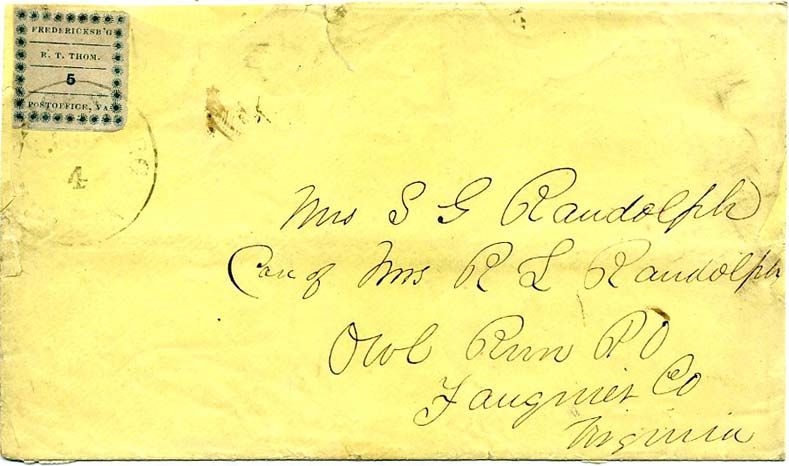 FREDERICKSB'G
R. T. THOM.
5
POSTOFFICE, VA.
4
Mrs S G Randolph
Care of Mrs R L Randolph
Owl Run PO
Fauquier Co
Virginia